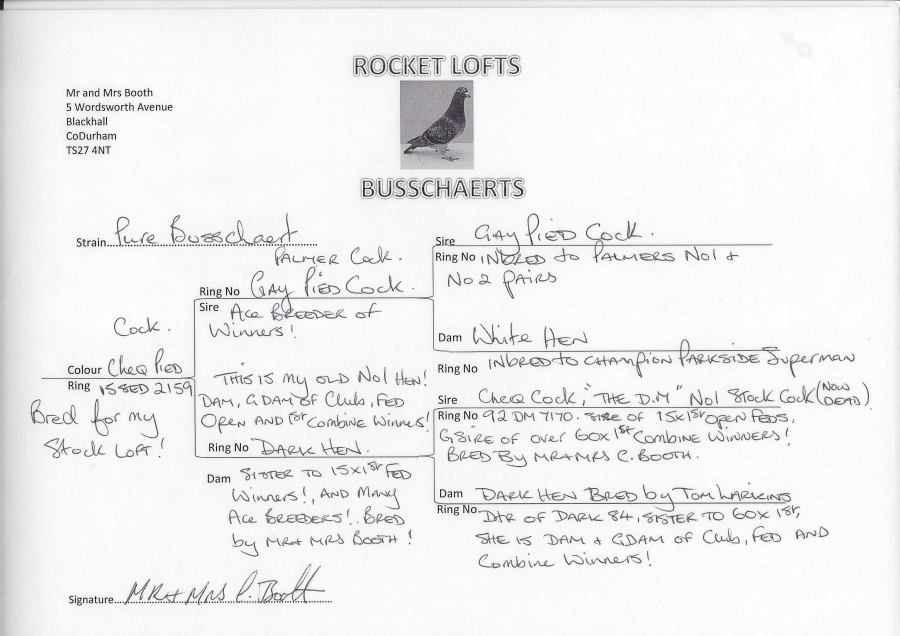 ROCKET LOFTS
Mr and Mrs Booth
5 Wordsworth Avenue
Blackhall
CoDurham
TS27 4NT
BUSSCHAERTS
Strain Pure Busschaert
PALMER COCK.
Ring No GAY PIED COCK.
Sire ACE BREEDER OF
Winners!
Cock.
Colour CHEQ PIED
Ring 15SED 2159
Bred for my
Stock Loft!
THIS IS MY OLD NO1 HEN!
DAM, G.DAM OF Club, FED
OPEN AND 1st COMBINE Winners!
Ring No DARK HEN.
Dam SISTER TO 15x1st FED
Winners!, AND MANY
ACE BREEDERS!. BRED
by MR+ MRS BOOTH!
Sire GAY PIED COCK.
Ring No INBRED to PALMERS NO1 +
NO2 PAIRS
Dam White HEN
Ring No INBRED TO CHAMPION PARKSIDE Superman
Sire CHEQ COCK, "THE D.M" NO1 STOCK COCK (NOW DEAD)
Ring No 92 DM 7170. SIRE OF 15x1st OPEN FEDS,
G.SIRE OF OVER 60x1st COMBINE WINNERS!
BRED BY MR+MRS C. BOOTH.
Dam DARK HEN BRED by TOM LARKINS
Ring No DTR OF DARK 84, SISTER TO 60x1st,
SHE IS DAM + GDAM OF Club, FED AND
Combine Winners!
Signature MR+ MRS C. Booth